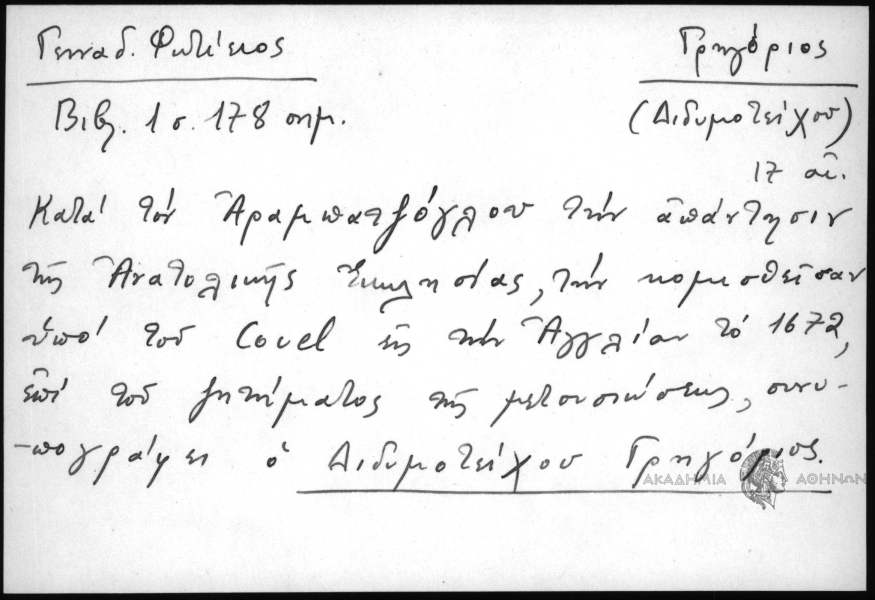 Γενναδ. Φωτίειος
Γρηγόριος
Βιβλ. 1 σ. 178 σημ.
(Διδυμοτείχου)
17 αἰ.
Κατά τόν Ἀραμπατζόγλου τήν ἀπάντησιν
τῆς Ἀνατολικῆς Ἐκκλησίας, τήν κομισθεῖσαν
ὑπό τοῦ Covel εἰς τήν Ἀγγλίαν τό 1672,
ἐπί τοῦ ζητήματος τῆς μετουσιώσεως, συνυ-
-πογράφει ὁ Διδυμοτείχου Γρηγόριος.
ΑΚΑΔΗΜΙΑ ΑΘΗΝΩΝ